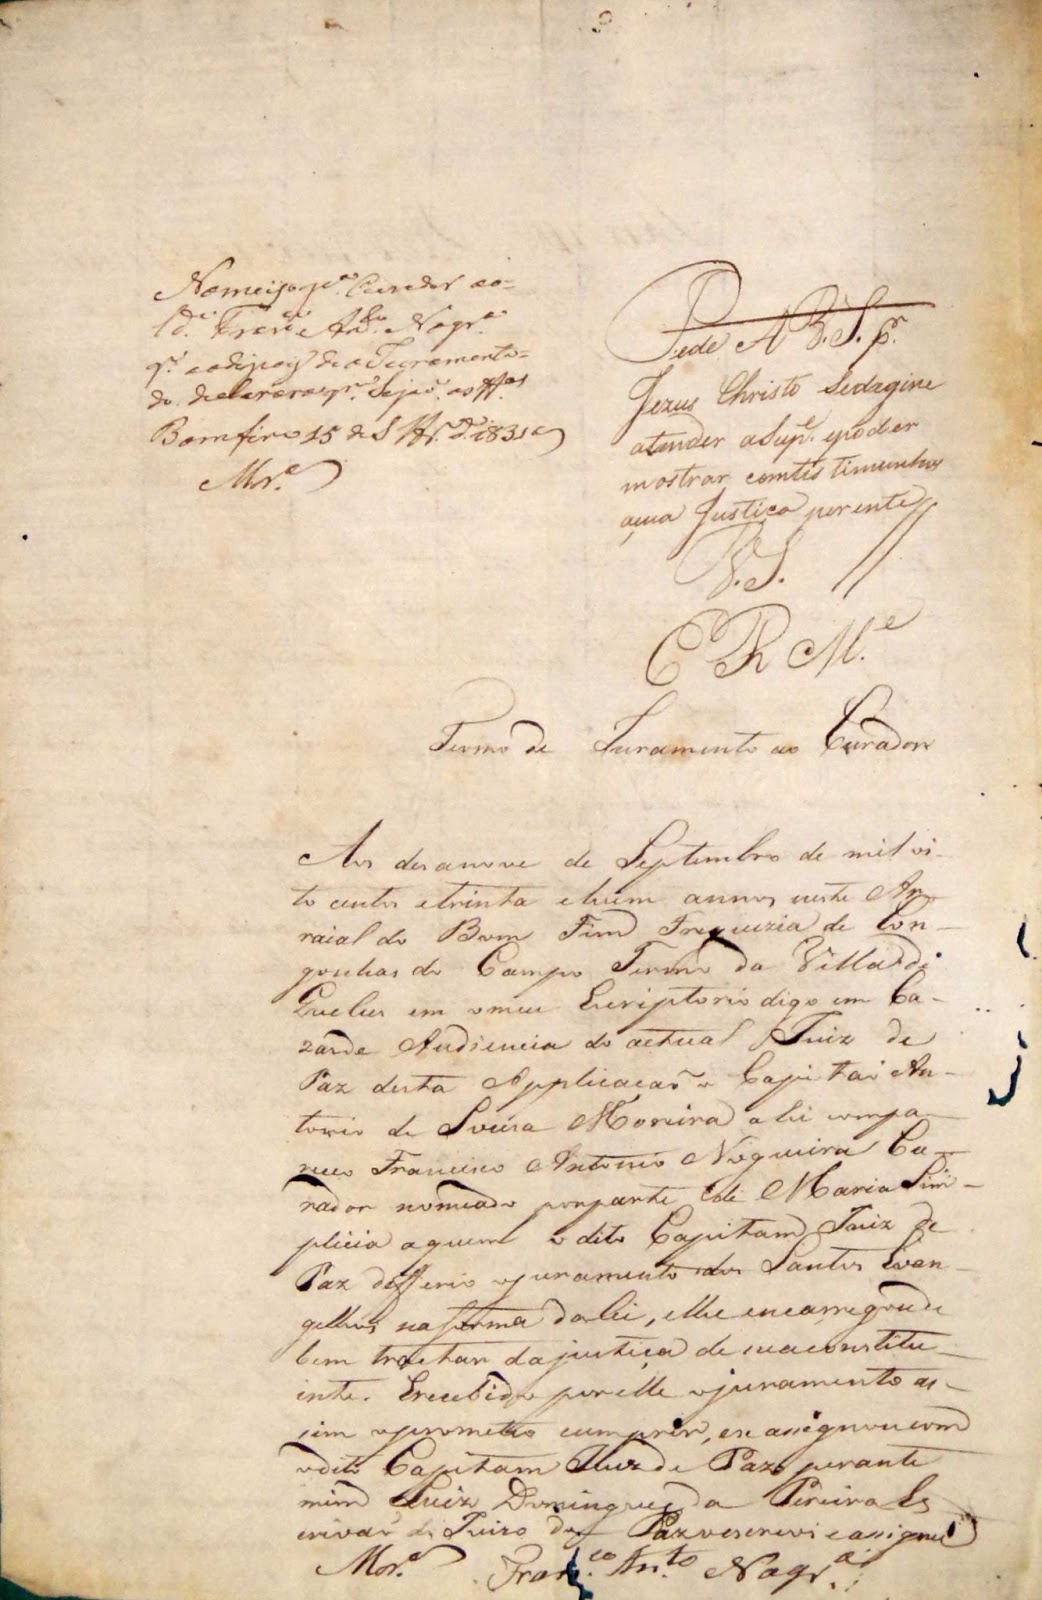 Nomeio p.ª Curador ao
Fran.co An.to Nogr.ª
q.' e adipois de o Juramento
do declarara q.m Sejão as tt.as
Bomfim 15 de S.tbr.o d' 1831
Mor.ª
Pede A V. S. p.r
Jezus Christo Sedegine
atender a Sup.e e poder
mostrar com tistimunhas
a sua Justiça perente
V. S.
E R M.e
Termo de Juramento ao Curador
Aos desanove de Septembro de mil oi-
to centos e trinta e hum annos neste Ar-
raial do Bom Fim Freguezia de Con-
gonhas do Campo Termo da Villa de
Queluz em o meu Escriptorio digo em Ca-
za de Audiencia do actual Juiz de
Paz desta Applicacaõ o Capitaõ An-
tonio de Souza Moreira ahi compa-
receo Francisco Antonio Nogueira Cu-
rador nomeado por parte de Maria Sim-
plicia a quem o dito Capitam Juiz de
Paz defferio o juramento dos Santos Evan-
gelhos na forma da lei, e lhe encarregou de
bem tractar da justiça de sua constitu-
inte. E recebido por elle o juramento as-
sim o prometteo cumprir, e se assignou com
o dito Capitam Juiz de Paz perante
mim Luiz Domingues da Pereira Es
crivaõ do Juizo de Paz o escrevi e assignei
Mor.ª Fran.co An.to Nogr.ª